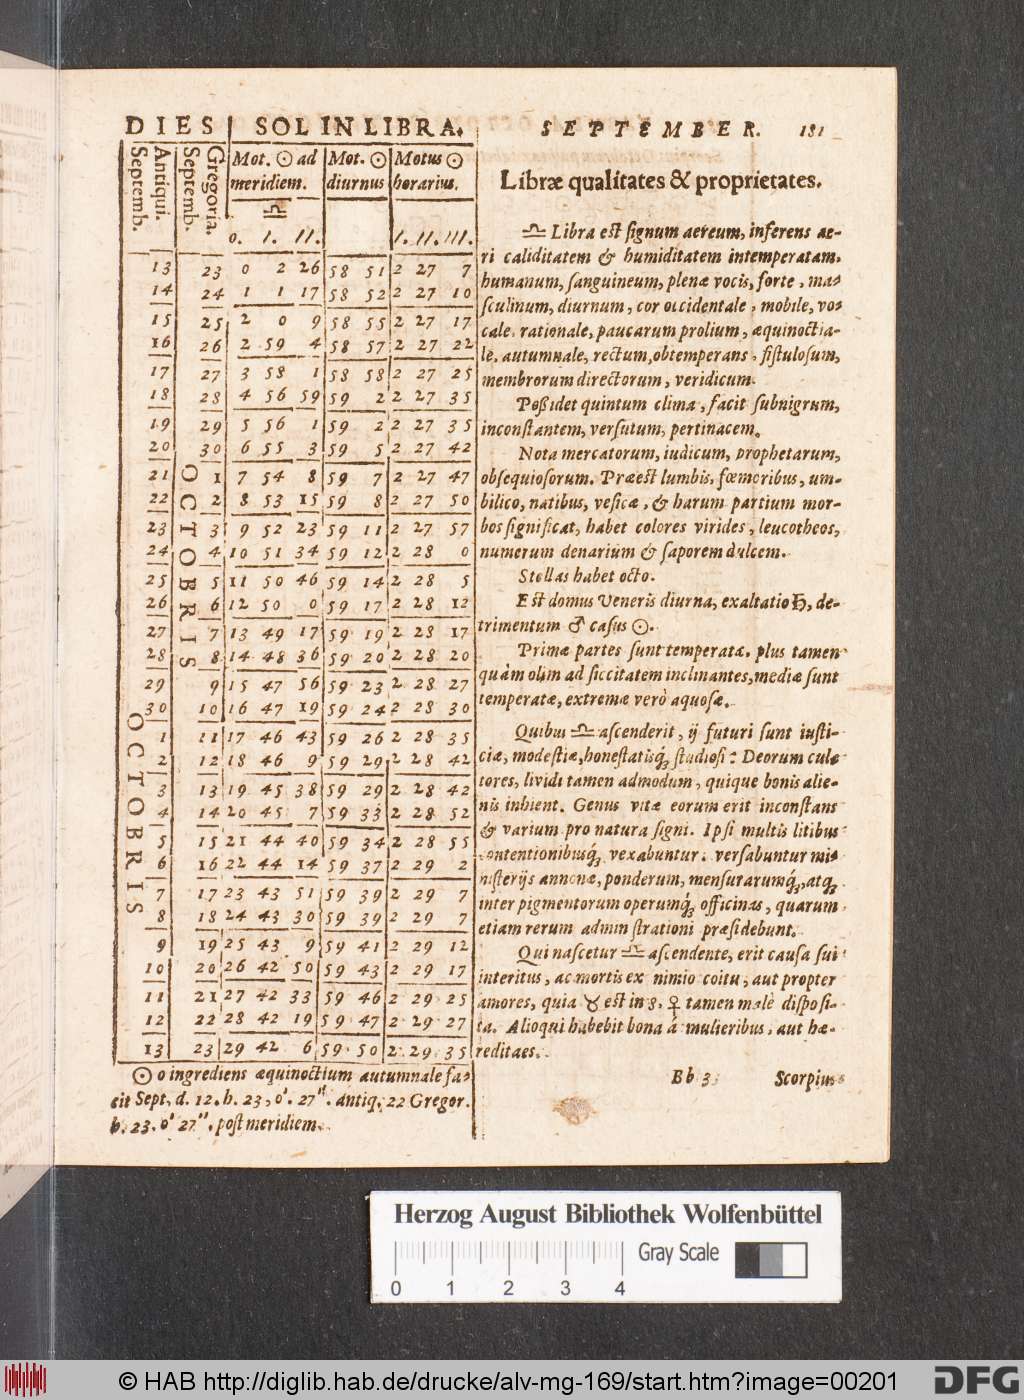 DIES SOL IN LIBRA.
Septemb. Antiqui. Septemb. Gregoria. Mot. ☉ ad meridiem. Mot. ☉ diurnus Motus ☉ horarius.
♎
0. I. II. I. II. III.
13 23 0 2 26 58 51 2 27 7
14 24 1 1 17 58 52 2 27 10
15 25 2 0 9 58 55 2 27 17
16 26 2 59 4 58 57 2 27 22
17 27 3 58 1 58 58 2 27 25
18 28 4 56 59 59 2 2 27 35
19 29 5 56 1 59 2 2 27 35
20 30 6 55 3 59 5 2 27 42
OCTOBRIS
21 1 7 54 8 59 7 2 27 47
22 2 8 53 15 59 8 2 27 50
23 3 9 52 23 59 11 2 27 57
24 4 10 51 34 59 12 2 28 0
25 5 11 50 46 59 14 2 28 5
26 6 12 50 0 59 17 2 28 12
27 7 13 49 17 59 19 2 28 17
28 8 14 48 36 59 20 2 28 20
29 9 15 47 56 59 23 2 28 27
30 10 16 47 19 59 24 2 28 30
OCTOBRIS
1 11 17 46 43 59 26 2 28 35
2 12 18 46 9 59 29 2 28 42
3 13 19 45 38 59 29 2 28 42
4 14 20 45 7 59 33 2 28 52
5 15 21 44 40 59 34 2 28 55
6 16 22 44 14 59 37 2 29 2
7 17 23 43 51 59 39 2 29 7
8 18 24 43 30 59 39 2 29 7
9 19 25 43 9 59 41 2 29 12
10 20 26 42 50 59 43 2 29 17
11 21 27 42 33 59 46 2 29 25
12 22 28 42 19 59 47 2 29 27
13 23 29 42 6 59 50 2 29 35
☉ 0 ingrediens æquinoctium autumnale fa-
cit Sept. d. 12. h. 23, 0'. 27''. antiq. 22 Gregor.
h. 23. 0' 27''. post meridiem.
SEPTEMBER. 181
Libræ qualitates & proprietates.
♎ Libra est signum aereum, inferens ae-
ri caliditatem & humiditatem intemperatam.
humanum, sanguineum, plenæ vocis, forte, ma-
sculinum, diurnum, cor occidentale, mobile, vo-
cale, rationale, paucarum prolium, æquinoctia-
le, autumnale, rectum, obtemperans, fistulosum,
membrorum directorum, veridicum.
Poßidet quintum clima, facit subnigrum,
inconstantem, versutum, pertinacem.
Nota mercatorum, iudicum, prophetarum,
obsequiosorum. Præest lumbis, fœmoribus, um-
bilico, natibus, vesicæ, & harum partium mor-
bos significat, habet colores virides, leucotheos,
numerum denarium & saporem dulcem.
Stellas habet octo.
Est domus Veneris diurna, exaltatio ♄, de-
trimentum ♂ casus ☉.
Primæ partes sunt temperatæ. plus tamen
quàm olim ad siccitatem inclinantes, mediæ sunt
temperatæ, extremæ verò aquosæ.
Quibus ♎ ascenderit, ij futuri sunt iusti-
ciæ, modestiæ, honestatisq́; studiosi: Deorum cul-
tores, lividi tamen admodum, quique bonis alie-
nis inhient. Genus vitæ eorum erit inconstans
& varium pro natura signi. Ipsi multis litibus
contentionibusq́; vexabuntur. versabuntur mi-
nisterijs annonæ, ponderum, mensurarumq́;, atq;
inter pigmentorum operumq́; officinas, quarum
etiam rerum administrationi præsidebunt.
Qui nascetur ♎ ascendente, erit causa sui
interitus, ac mortis ex nimio coitu, aut propter
amores, quia ♉ est in 8. ♀ tamen malè disposi-
ta. Alioqui habebit bona à mulieribus, aut hæ-
reditaes.
Bb 3 Scorpius
Herzog August Bibliothek Wolfenbüttel
Gray Scale
0 1 2 3 4
© HAB http://diglib.hab.de/drucke/alv-mg-169/start.htm?image=00201
DFG